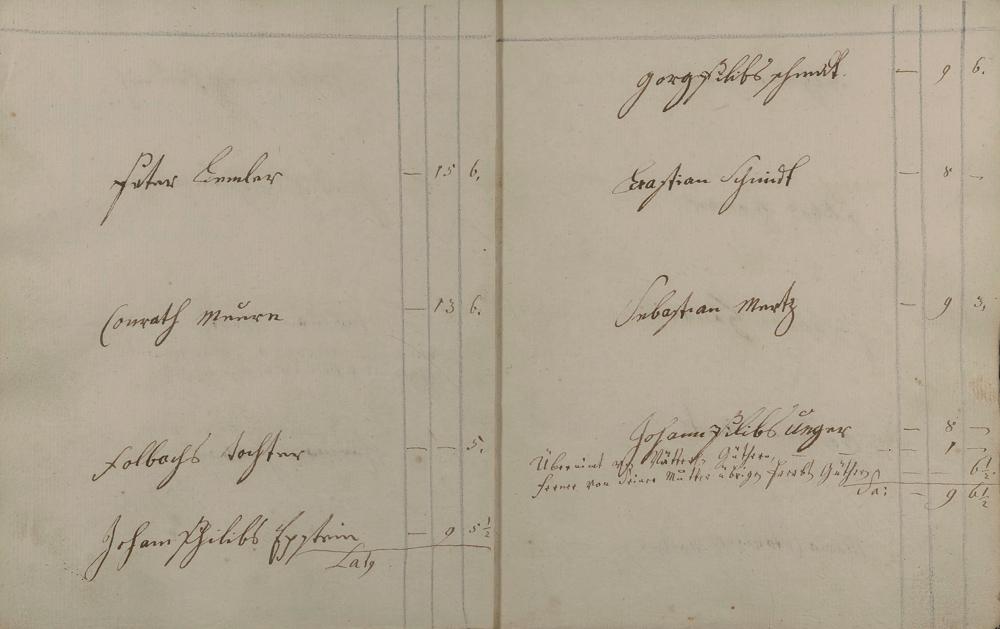 Peter Kemler — 15 6.
Conrath Meürn — 13 6.
Folbachs Tochter — — 5.
Joham Philibs Epstein — 9 5 1/2
Laty
Gorg Pilibs Schmidt. — 9 6.
Bastian Schmidt — 8 —
Sebastian Mertz — 9 3.
Johann Pilibs Unger — 8 —
Übernimt Vätterl. Güthern, — 1 —
ferner von Seiner Mutter übrigen Güthern — — 6 1/2
Sa: — 9 6 1/2